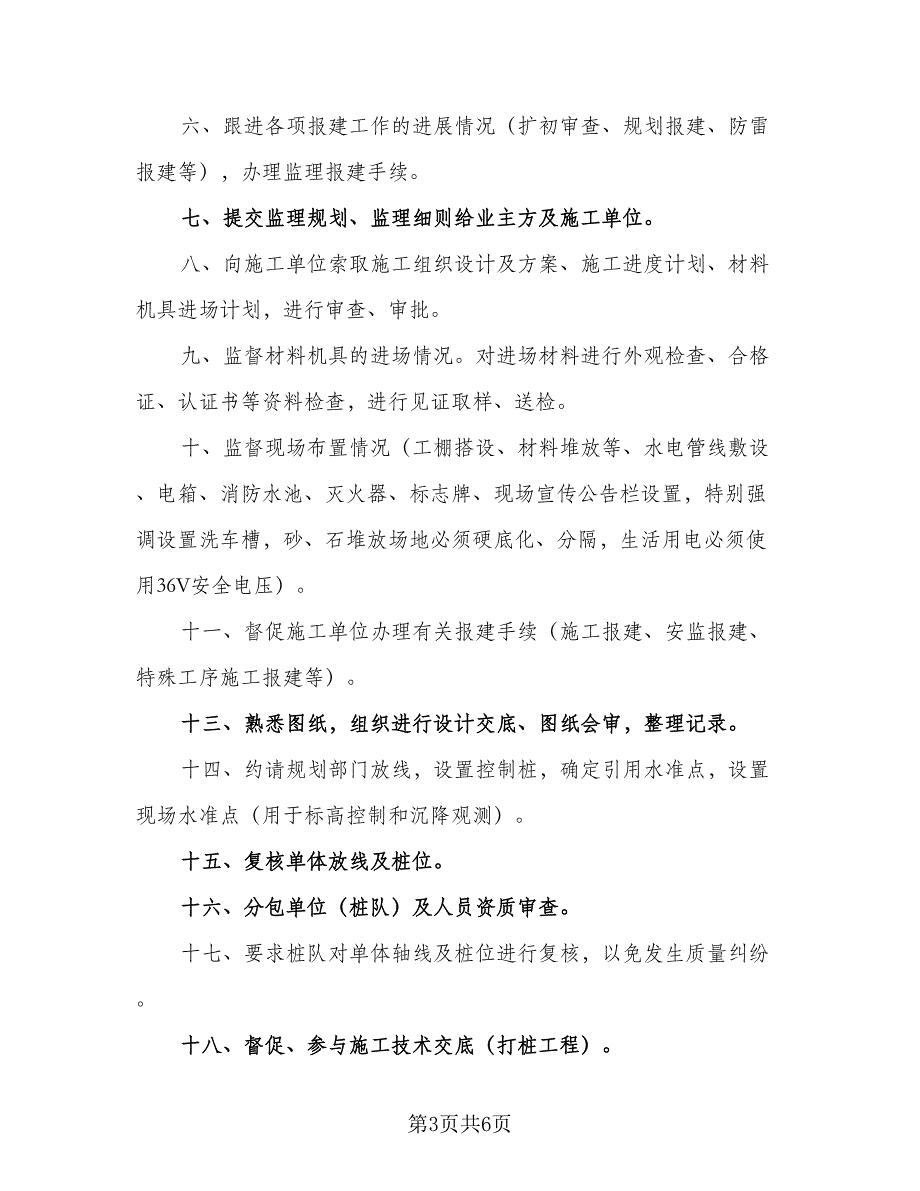 六、跟进各项报建工作的进展情况（扩初审查、规划报建、防雷
报建等），办理监理报建手续。
七、提交监理规划、监理细则给业主方及施工单位。
八、向施工单位索取施工组织设计及方案、施工进度计划、材料
机具进场计划，进行审查、审批。
九、监督材料机具的进场情况。对进场材料进行外观检查、合格
证、认证书等资料检查，进行见证取样、送检。
十、监督现场布置情况（工棚搭设、材料堆放等、水电管线敷设
、电箱、消防水池、灭火器、标志牌、现场宣传公告栏设置，特别强
调设置洗车槽，砂、石堆放场地必须硬底化、分隔，生活用电必须使
用36V安全电压）。
十一、督促施工单位办理有关报建手续（施工报建、安监报建、
特殊工序施工报建等）。
十三、熟悉图纸，组织进行设计交底、图纸会审，整理记录。
十四、约请规划部门放线，设置控制桩，确定引用水准点，设置
现场水准点（用于标高控制和沉降观测）。
十五、复核单体放线及桩位。
十六、分包单位（桩队）及人员资质审查。
十七、要求桩队对单体轴线及桩位进行复核，以免发生质量纠纷
。
十八、督促、参与施工技术交底（打桩工程）。
第3页共6页